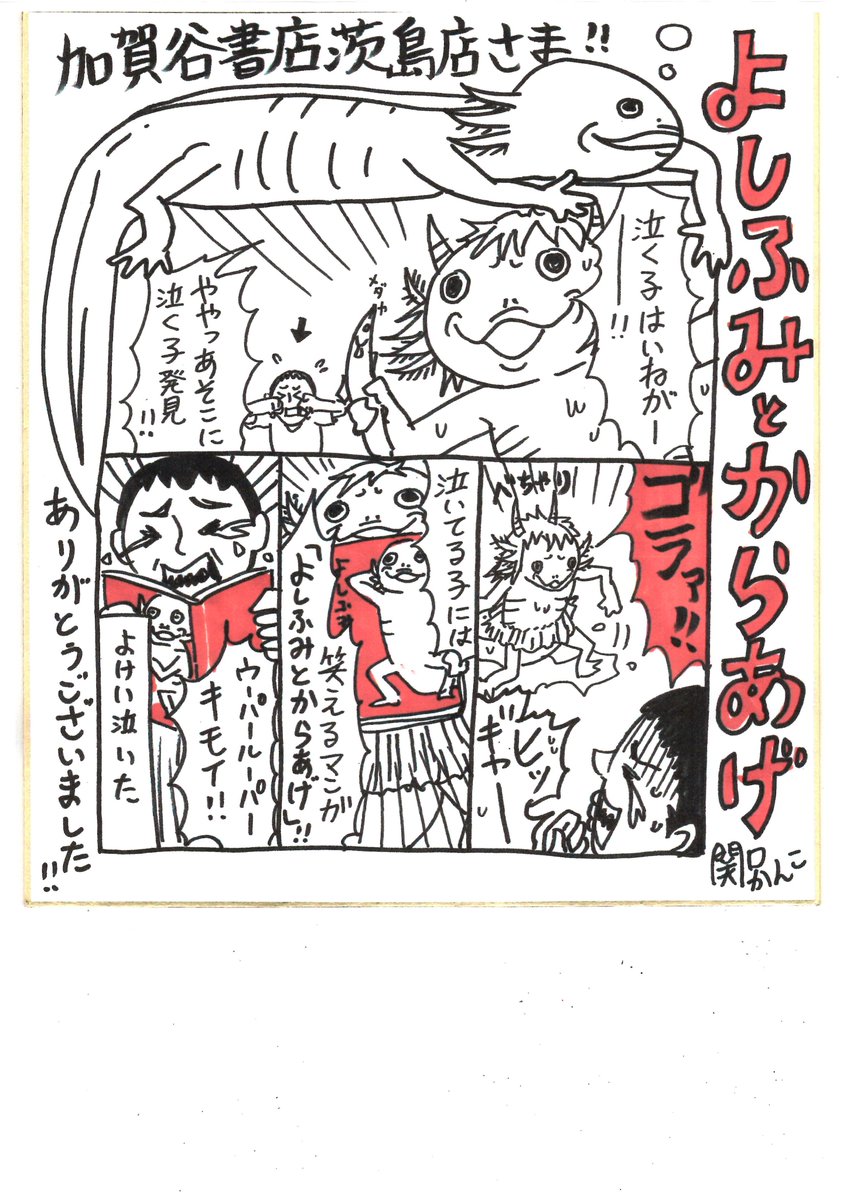 加賀谷書店茨島店さま!!
よしふみとからあげ
泣くこはいねがー
ーー!!
メダカ
ややっあそこに
泣く子発見!!
ゴラァ!!
べちゃり
ビッ
ギャー
泣いてる子には
笑えるマンガ
「よしふみとからあげ」!!
よしふみ
ウーパールーパー
キモイ!!
よけい泣いた
ありがとうございました!!
関口かんこ